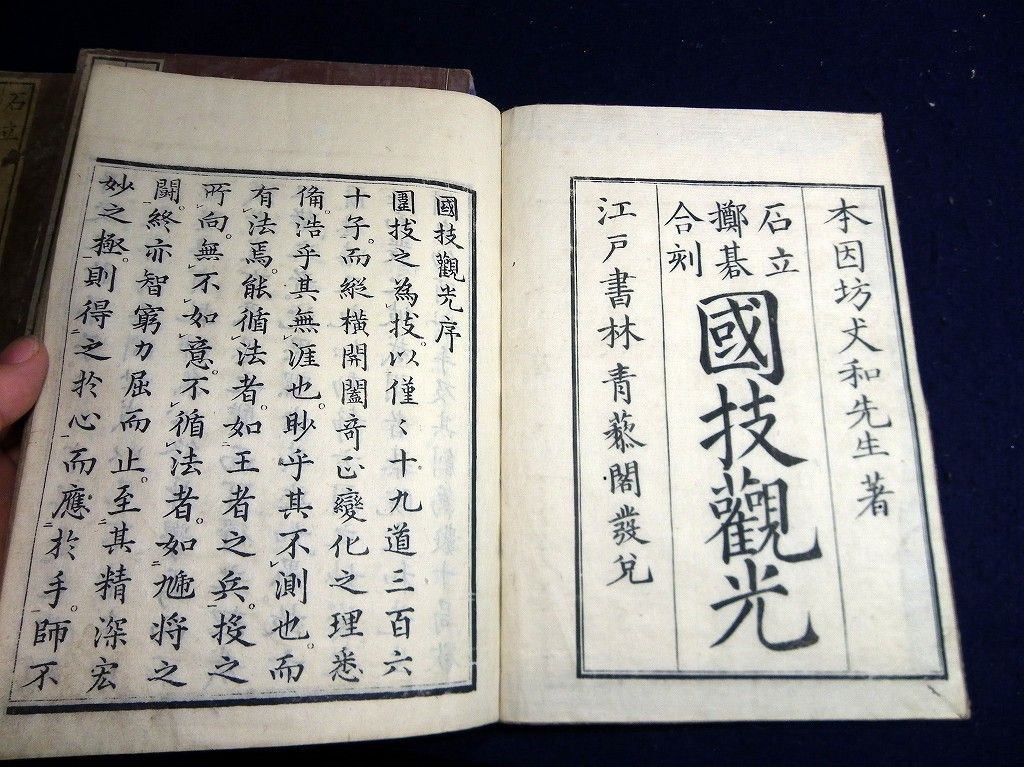 本因坊丈和先生著
石立
擲碁
合刻
國技觀光
江戸書林青藜閣發兌
國技觀光序
圍技之為技。以僅〻十九道三百六
十子。而縱橫開闔竒正變化之理悉
備。浩乎其無涯也。眇乎其不測也。而
有法焉。能循法者。如王者之兵。投之
所向。無不如意。不循法者。如虓將之
鬪。終亦智窮力屈而止。至其精深宏
妙之極。則得之於心。而應於手。師不
石立